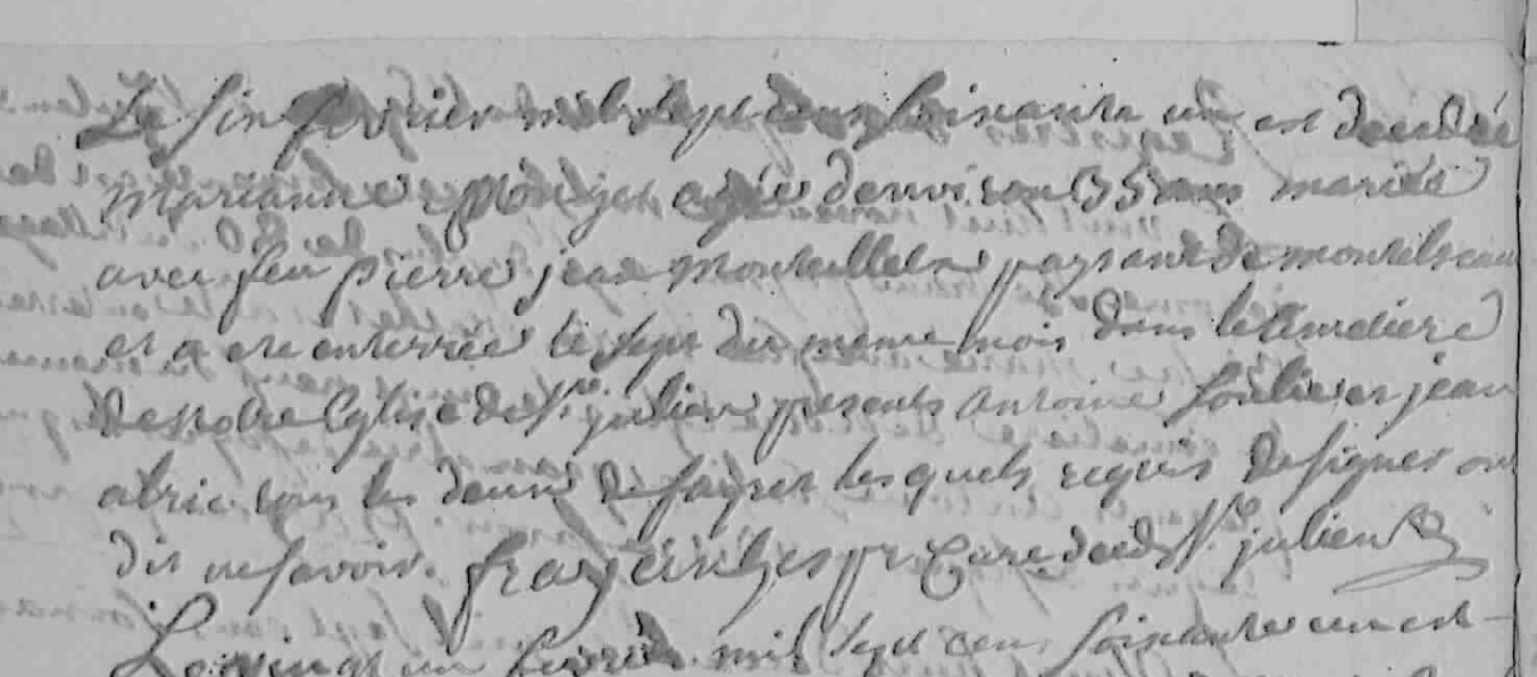 Le six fevrier mil sept cens soixante un est decedée
Marianne agée denviron 35 ans mariée
avec feu pierre jean de
et a ete enterrée le sept du meme mois dans le cimetiere
de notre Eglise de St. julien presents antoine Soulier et jean
abric tous les deux de lesquels requis de signer ont
dit ne savoir. pr Curé dud St. julien
Le vingt un fevrier mil sept cens soixante un est